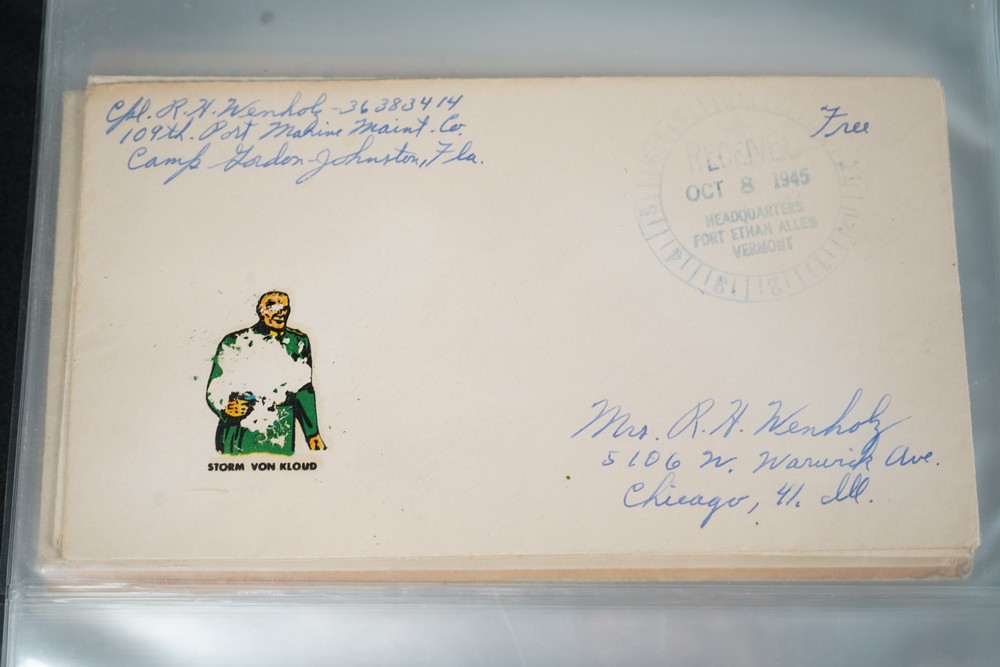 Cpl. R. H. Wenholz - 36383414
109th. Port Marine Maint. Co.
Camp Gordon Johnston, Fla.
Free
RECEIVED
OCT 8 1945
HEADQUARTERS
FORT ETHAN ALLEN
VERMONT
STORM VON KLOUD
Mrs. R. H. Wenholz
5106 W. Warwick Ave.
Chicago, 41. Ill.